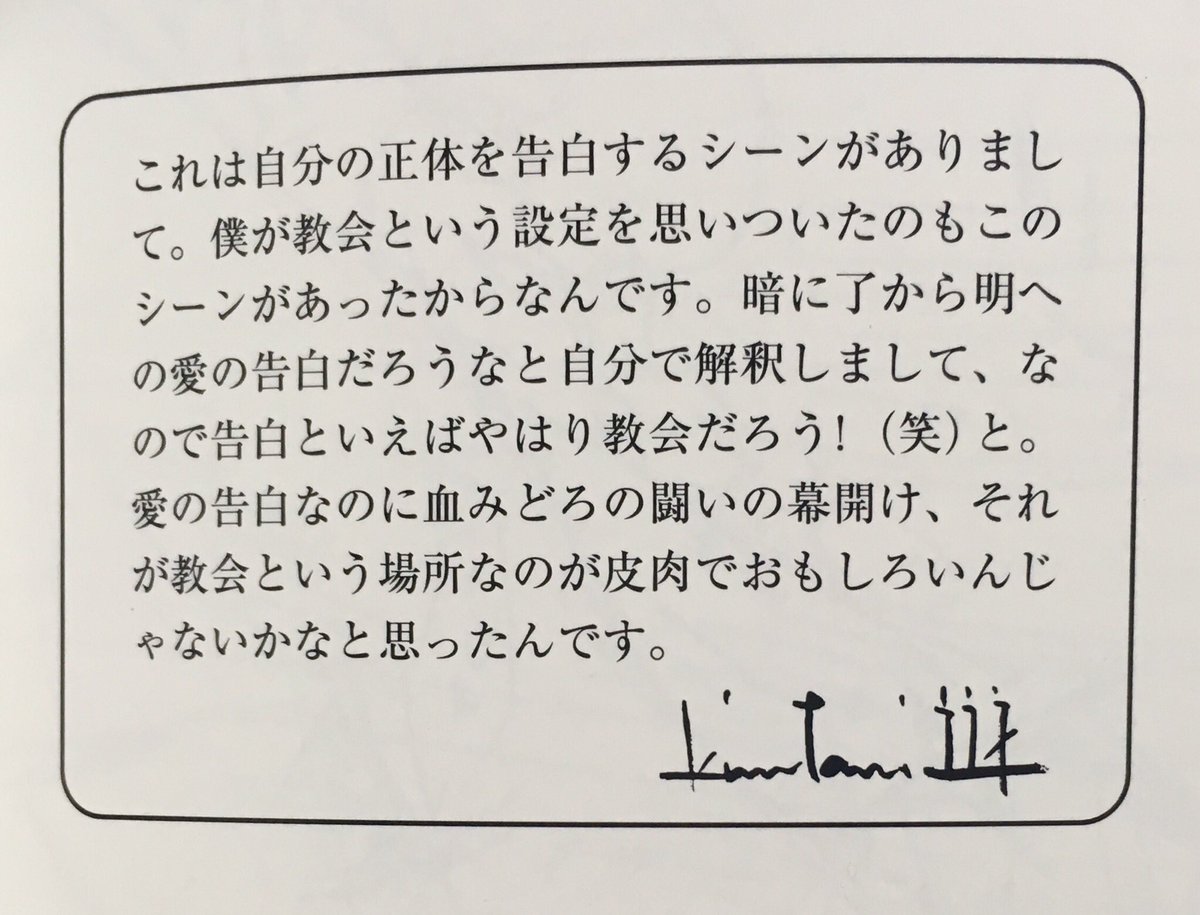 これは自分の正体を告白するシーンがありまし
て。僕が教会という設定を思いついたのもこの
シーンがあったからなんです。暗に了から明へ
の愛の告白だろうなと自分で解釈しまして、な
ので告白といえばやはり教会だろう！（笑）と。
愛の告白なのに血みどろの闘いの幕開け、それ
が教会という場所なのが皮肉でおもしろいんじ
ゃないかなと思ったんです。